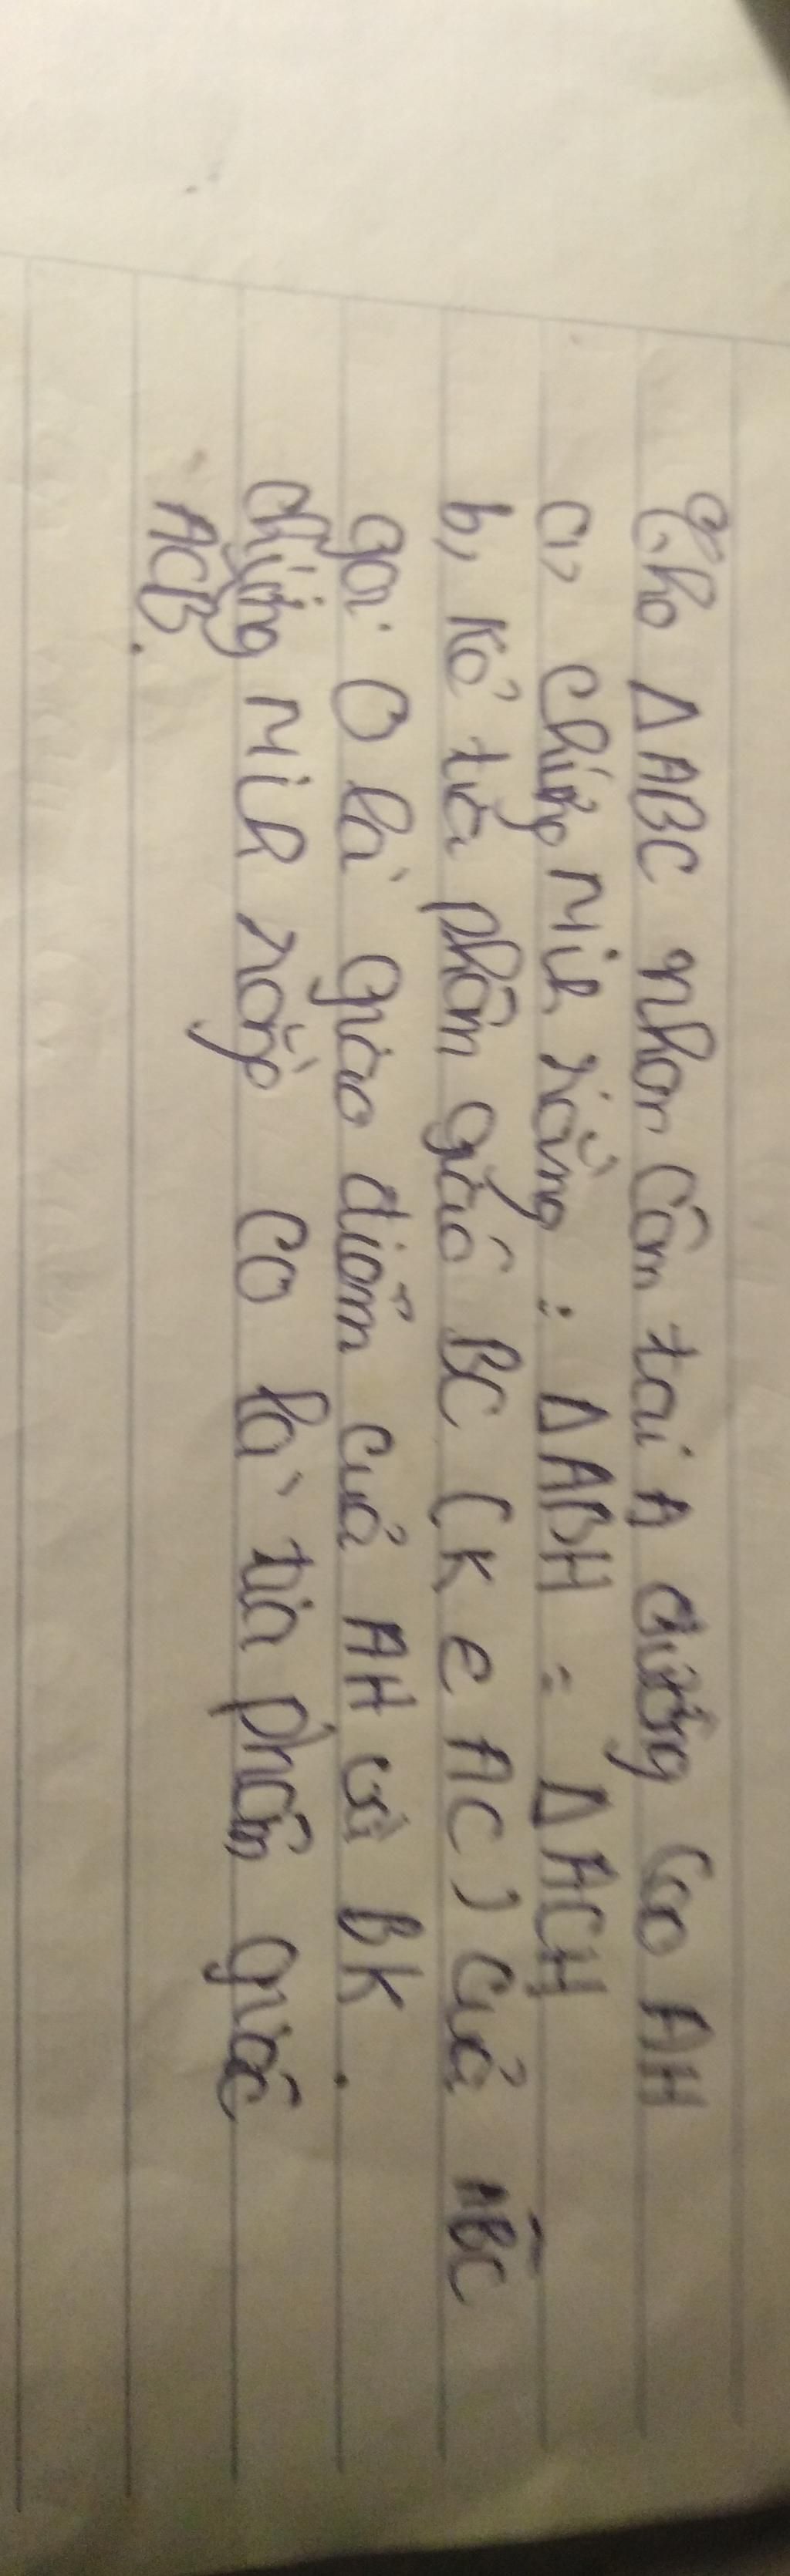 Cho ΔABC nhọn cân tại A đường cao AH
a, chứng minh rằng : ΔABH = ΔACH
b, Kẻ tia phân giác BC (K e AC) của ABC
gọi O là giao điểm của AH và BK .
chứng minh rằng CO là tia phân giác
ACB.